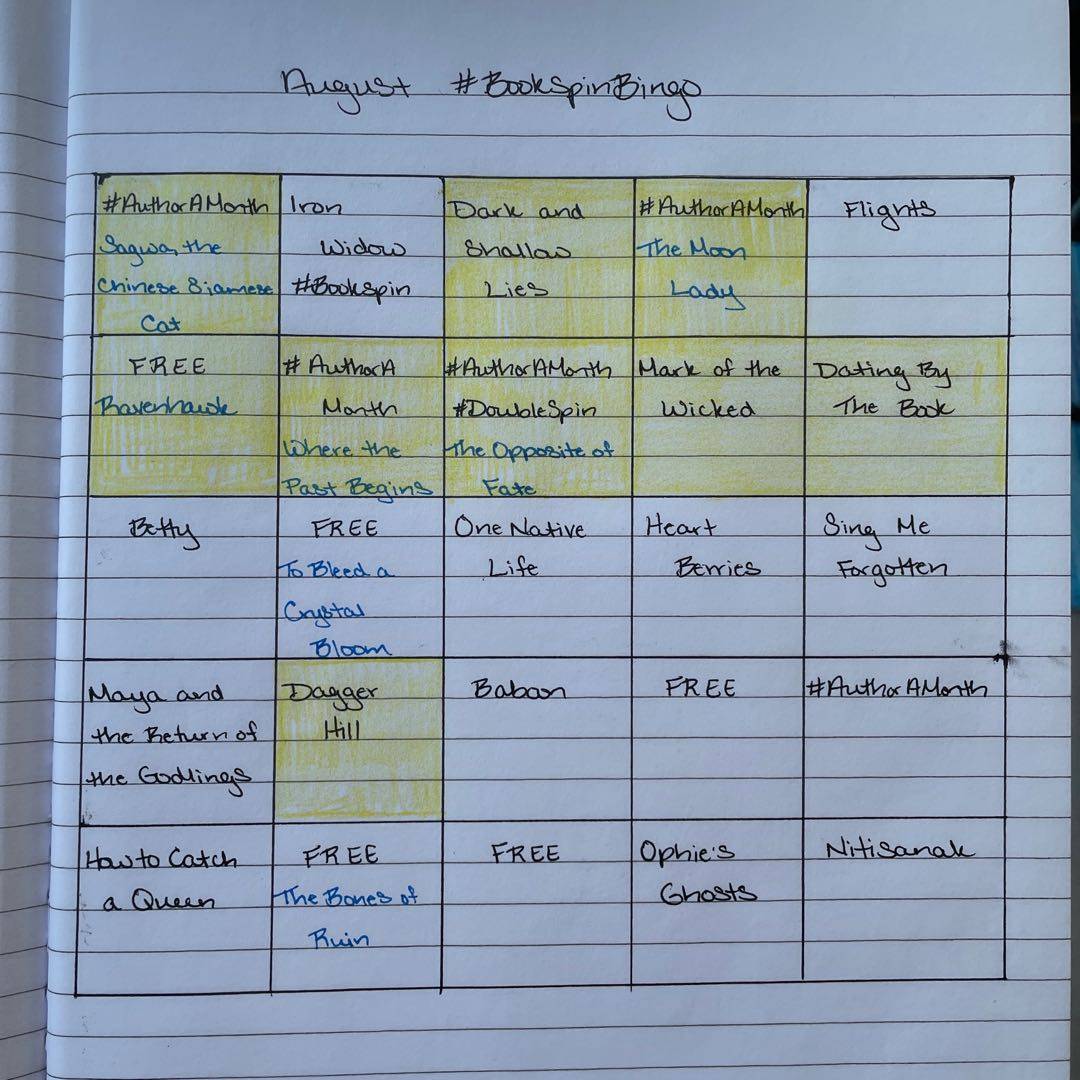 August #BookSpinBingo
#AuthorAMonth
Sagwa, the
Chinese Siamese
Cat
Iron
Widow
#Bookspin
Dark and
Shallow
Lies
#AuthorAMonth
The Moon
Lady
Flights
FREE
Ravenhawk
# AuthorA
Month
Where the
Past Begins
#AuthorAMonth
#DoubleSpin
The Opposite of
Fate
Mark of the
Wicked
Dating By
The Book
Betty
FREE
To Bleed a
Crystal
Bloom
One Native
Life
Heart
Berries
Sing Me
Forgotten
Maya and
the Return of
the Godlings
Dagger
Hill
Baban
FREE
#AuthorAMonth
How to Catch
a Queen
FREE
The Bones of
Ruin
FREE
Ophie's
Ghosts
Nitisanak